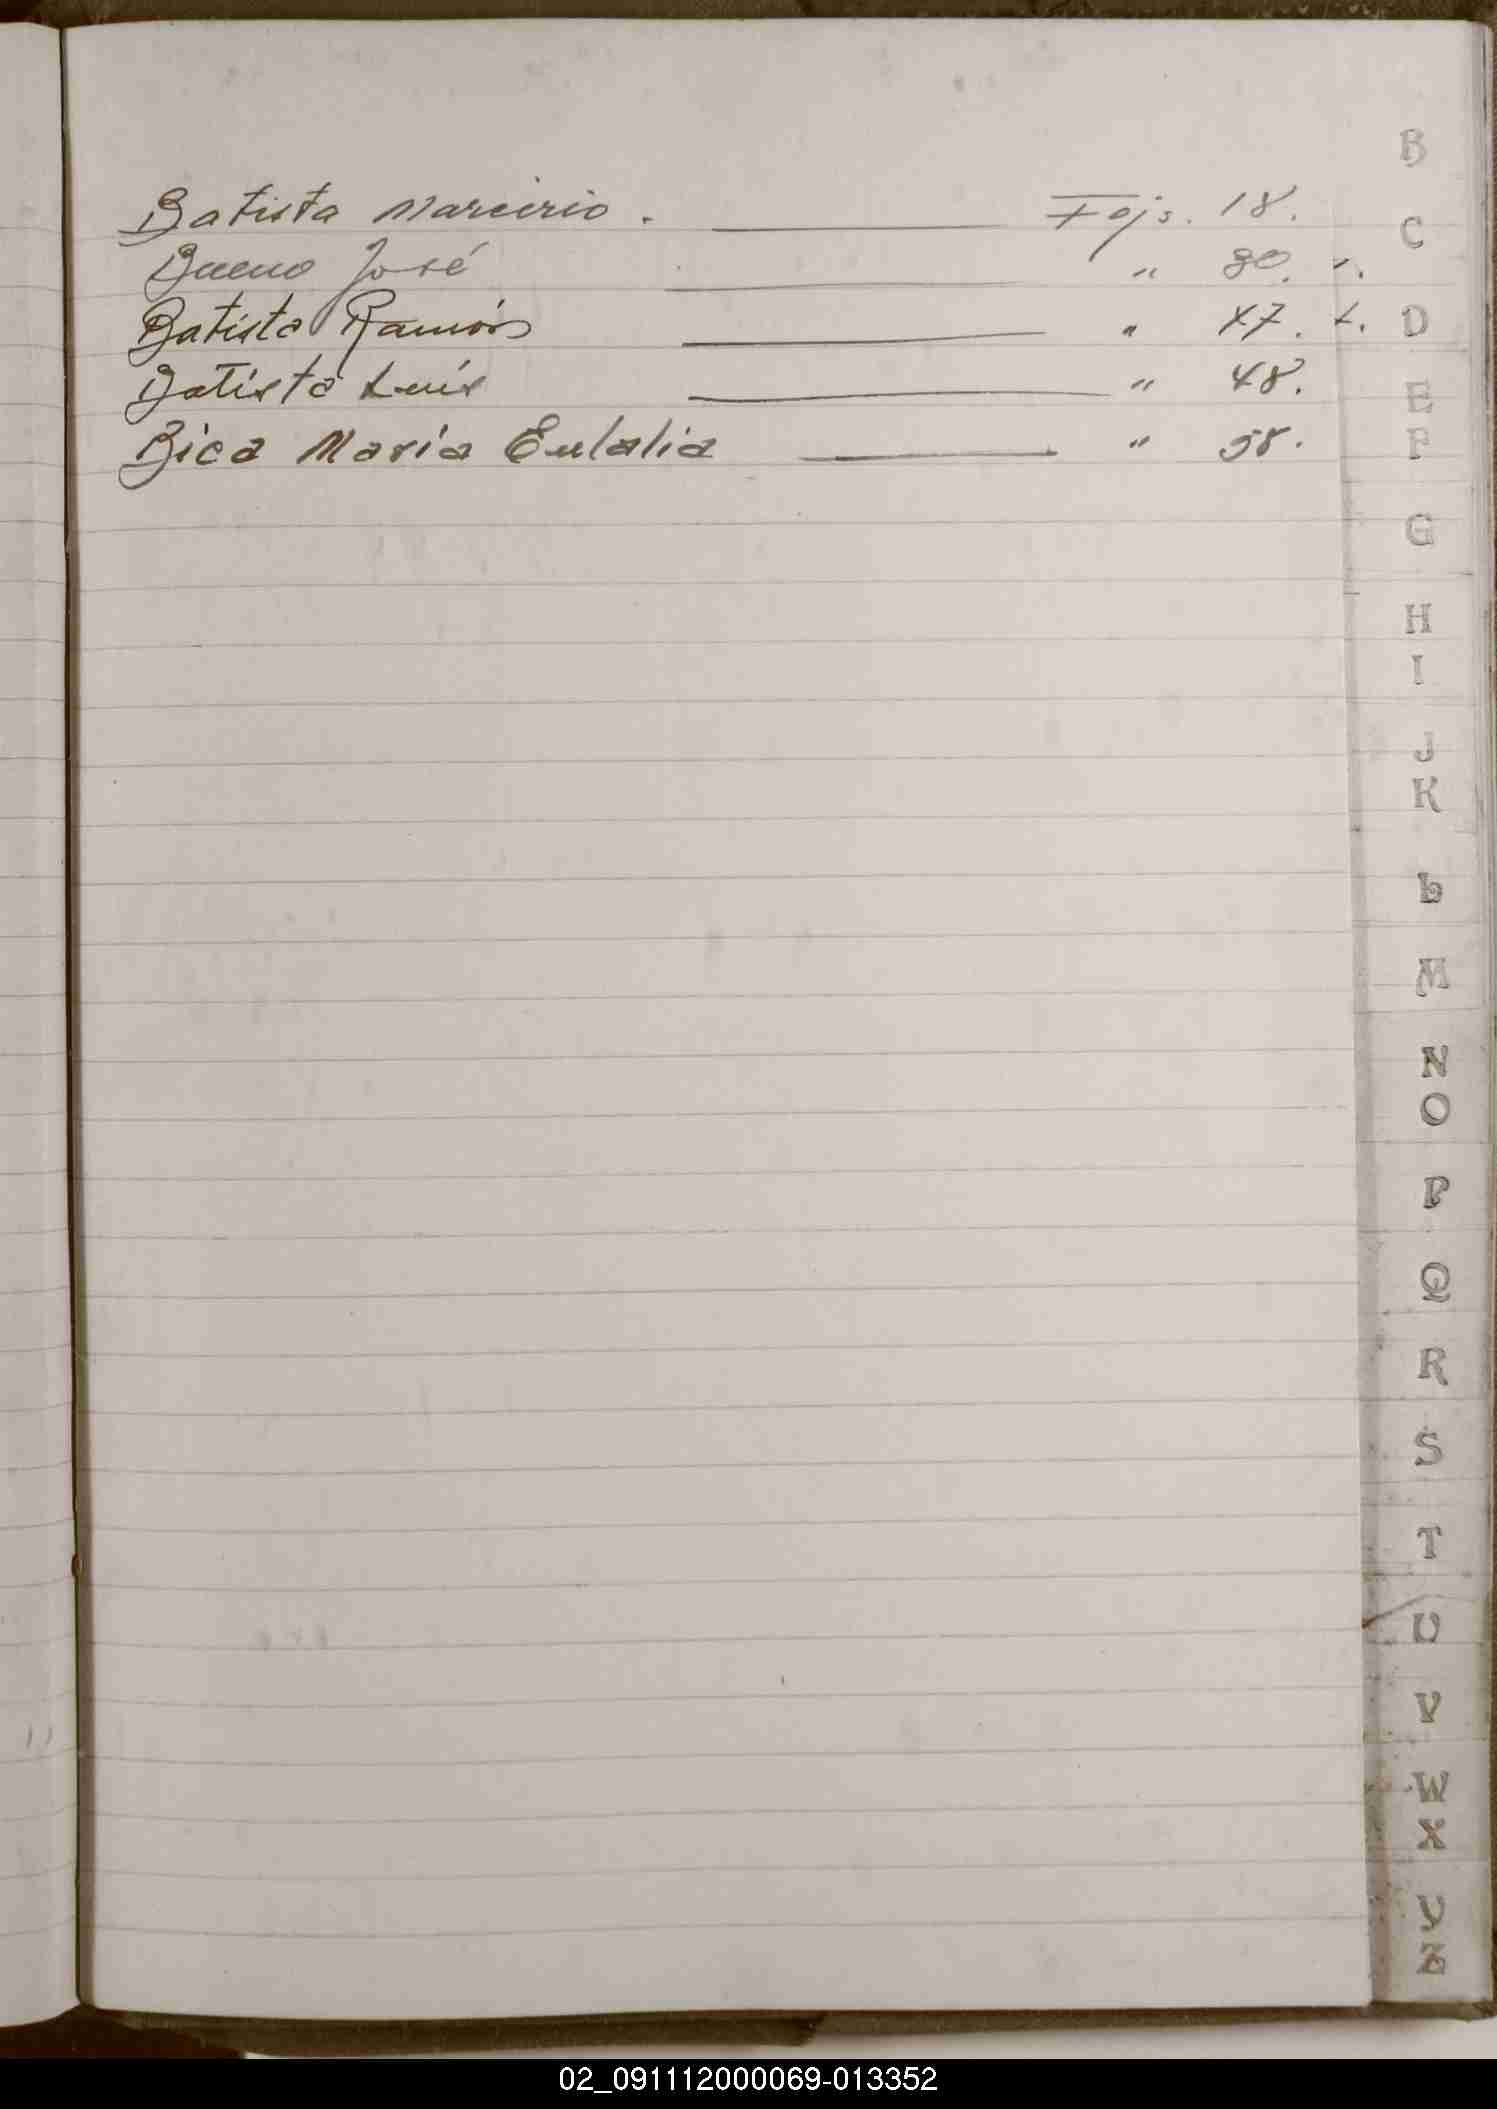 Batista Marcirio. Fojs. 18.
Bueno José " 30. ".
Batista Ramón " 47. t.
Batista Luis " 48.
Bica María Eulalia " 58.
B
C
D
E
F
G
H
I
J
K
L
M
N
O
P
Q
R
S
T
U
V
W
X
Y
Z
02_091112000069-013352